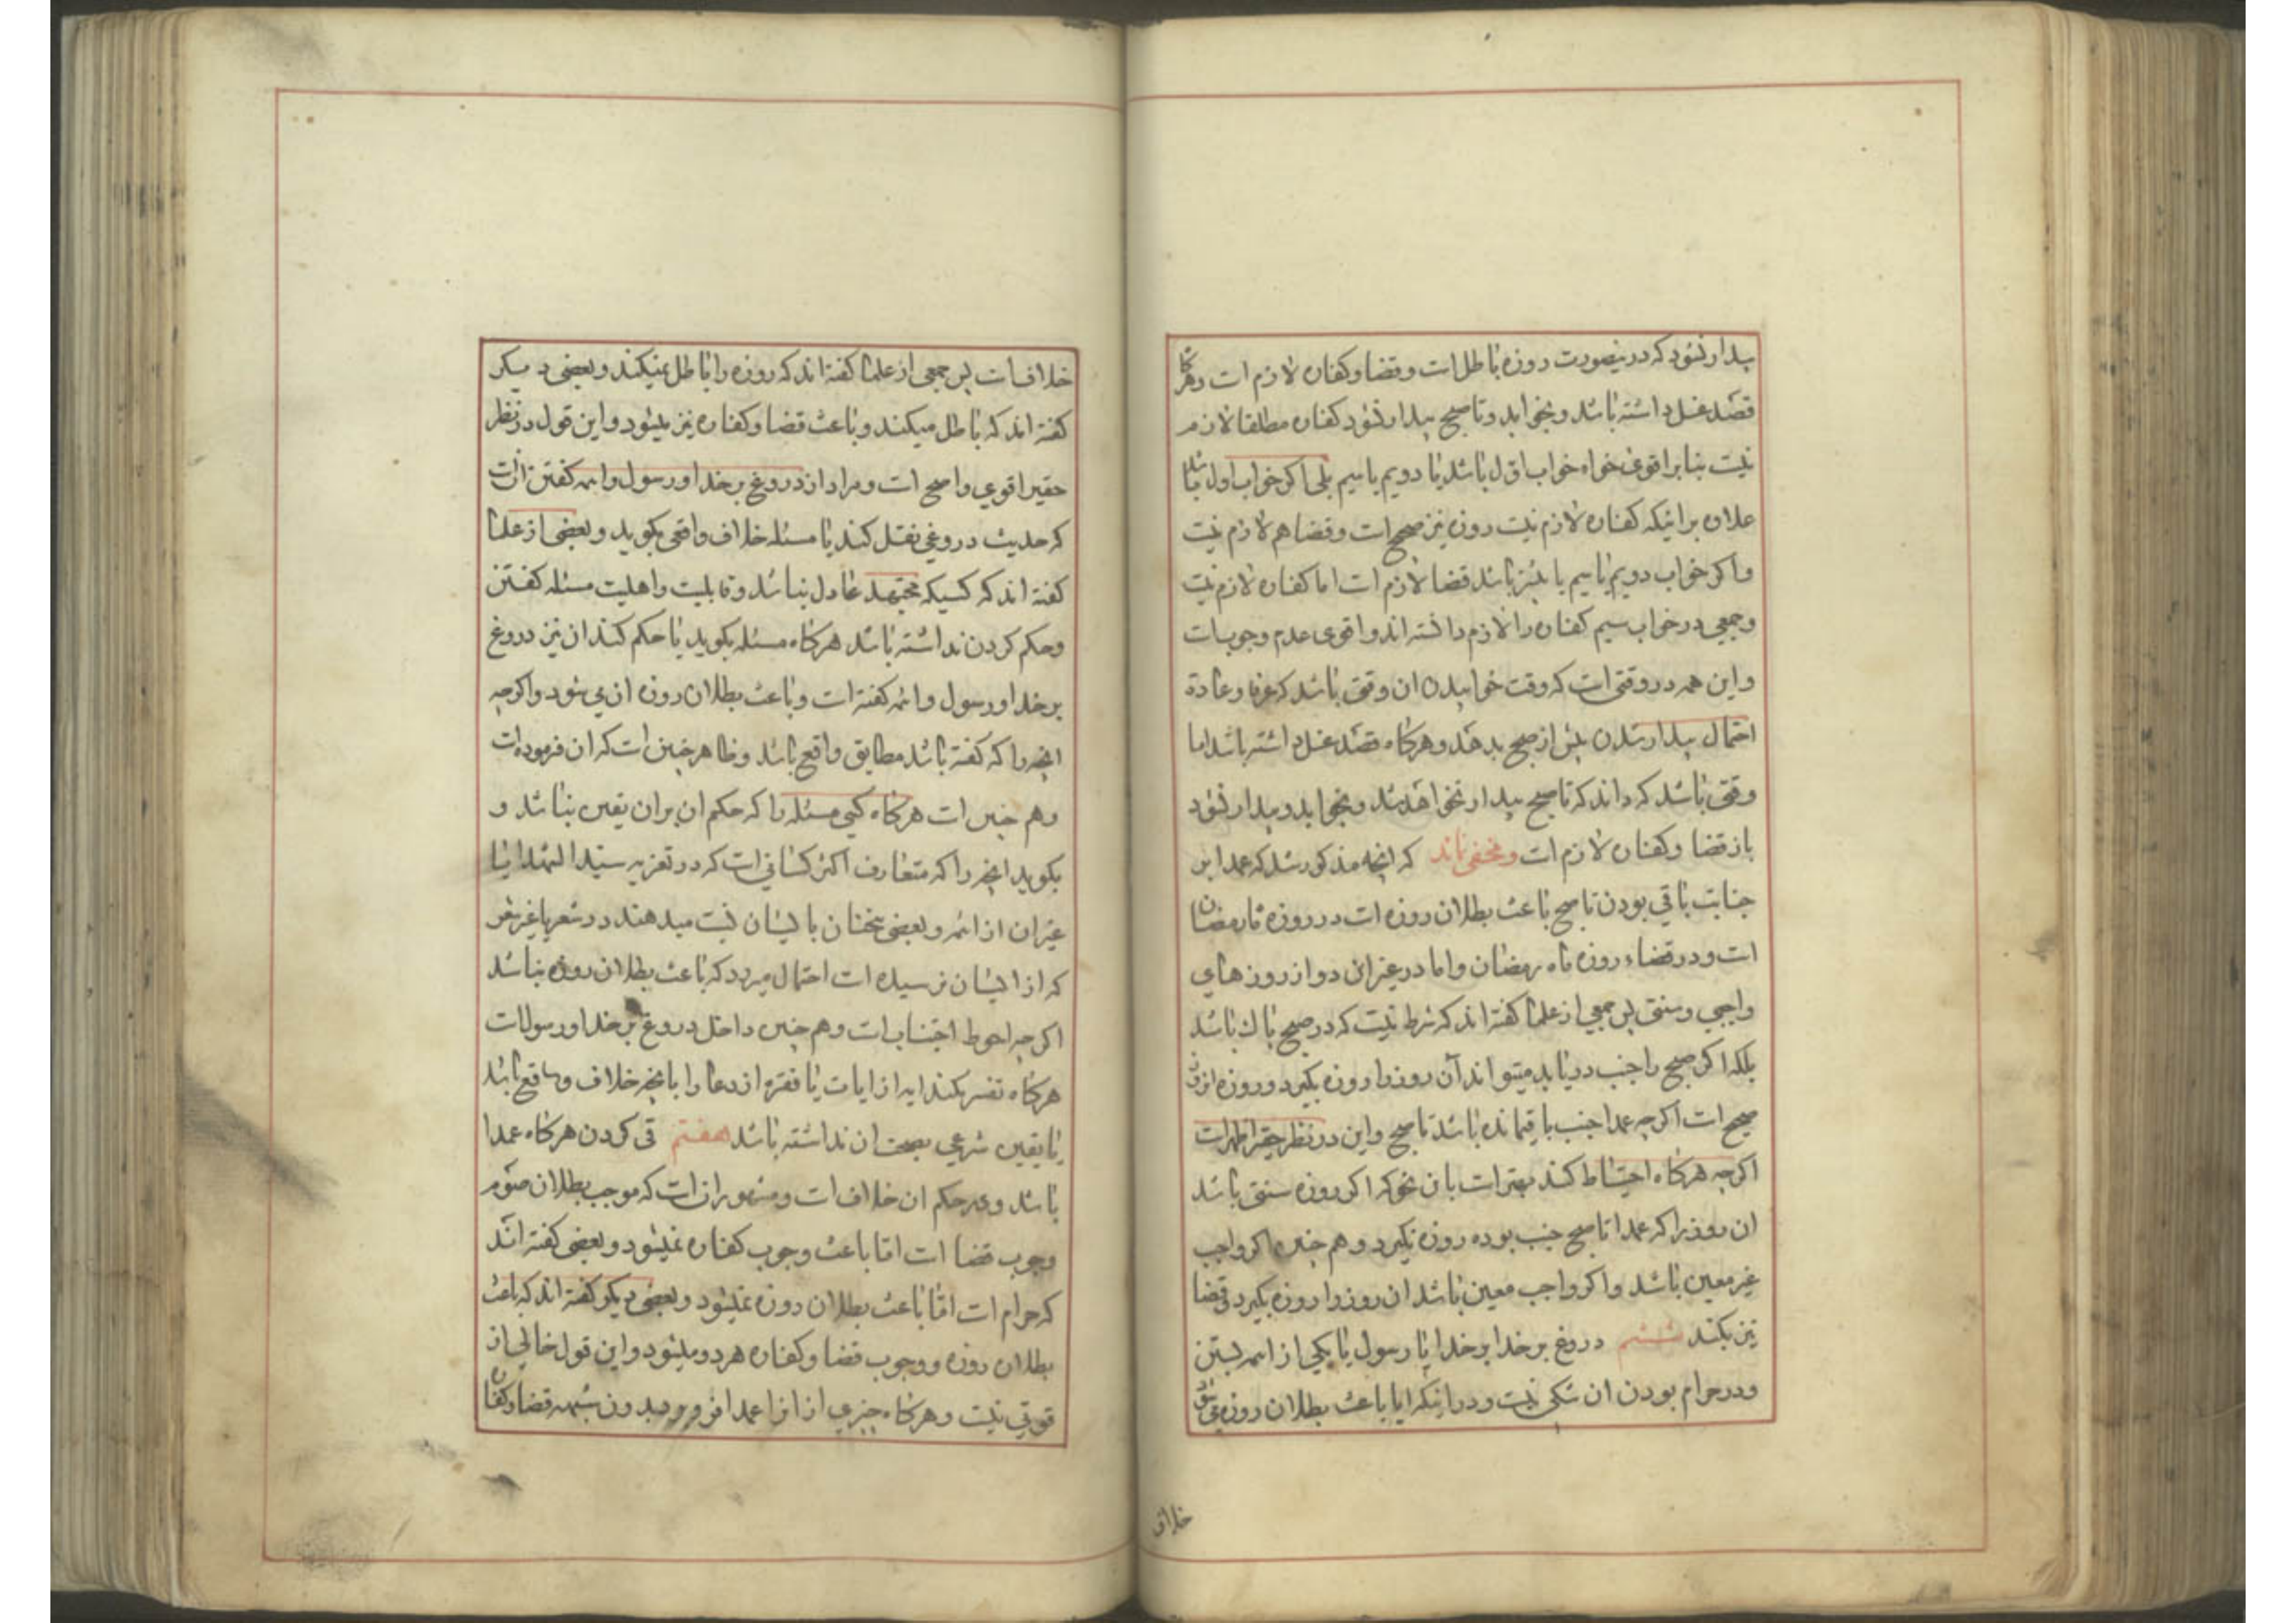 بیدار نشود که درینصورت روزه باطل است و قضا و کفاره لازم است و هرگاه
قصد غسل داشته باشد و بخوابد و تا صبح بیدار نشود کفاره مطلقا لازم
نیست بنابر اقوی خواه خواب اول باشد یا دویم یا سیم بلی اکر خواب اول باشد
علاوه بر اینکه کفاره لازم نیست روزه نیز صحیح است و قضا هم لازم نیست
و اکر خواب دویم یا سیم یا بیشتر باشد قضا لازم است اما کفاره لازم نیست
و جمعی در خواب سیم کفاره را لازم دانسته اند و اقوی عدم وجوبست
و این همه در وقتی است که وقت خوابیدن ان وقتی باشد که عرفا و عادة
احتمال بیدار شدن پیش از صبح بدهد و هرکاه قصد غسل داشته باشد اما
وقتی باشد که داند که تا صبح بیدار نخواهد شد و بخوابد و بیدار نشود
باز قضا و کفاره لازم است و مخفی نماند که انچه مذکور شد که عمدا بر
جنابت باقی بودن تا صبح باعث بطلان روزه است در روزه ماه رمضان
است و در قضاء روزه ماه رمضان و اما در غیر این دو از روزهای
واجبی و سنتی پس جمعی از علما کفته اند که شرط نیست که در صبح پاک باشد
بلکه اکر صبح را جنب دریابد میتواند آن روز را روزه بکیرد و روزه
صحیح است اکرچه عمدا جنب باقیمانده باشد تا صبح و این در نظر حقیر اظهر است
اکرچه هرکاه احتیاط کند بهتر است بان نحو که اکر روزه سنتی باشد
ان روز را که عمدا تا صبح جنب بوده روزه نکیرد و هم چنین اکر واجب
غیر معین باشد و اکر واجب معین باشد ان روز را روزه بکیرد و قضا
نیز بکند ششم دروغ بر خدا بر خدا یا رسول یا یکی از ائمه بستن
و در حرام بودن ان شکی نیست و در اینکه ایا باعث بطلان روزه می شود
خلاف
خلافست پس جمعی از علما کفته اند که روزه را باطل نمیکند و بعضی دیکر
کفته اند که باطل میکند و باعث قضا و کفاره نیز میشود و این قول در نظر
حقیر اقوی و اصح است و مراد از دروغ بر خدا و رسول و ائمه کفتن انست
که حدیث دروغی نقل کند یا مسئله خلاف واقعی بکوید و بعضی از علما
کفته اند که کسیکه مجتهد عادل نباشد و قابلیت و اهلیت مسئله کفتن
و حکم کردن نداشته باشد هرکاه مسئله بکوید یا حکم کند ان نیز دروغ
بر خدا و رسول و ائمه کفته است و باعث بطلان روزه ان می شود و اکرچه
انچه را که کفته باشد مطابق واقع باشد و ظاهر چنین است که ان فرموده است
و هم چنین است هرکاه کسی مسئله را که حکم ان بران یقین نباشد و
بکوید انچه را که متعارف اکثر کسانی است که در تعزیه سید الشهدا یا
غیر ان از ائمه و بعضی سخنان بایشان نسبت میدهند در شعر یا غیر شعر
که از ایشان نرسیده است احتمال میرود که باعث بطلان روزه نباشد
اکرچه احوط اجتناب است و هم چنین داخل دروغ بر خدا و رسولست
هرکاه تفسیر بکند ایه از ایات یا فقره از دعا را بانچه خلاف واقع باشد
یا یقین شرعی بصحت ان نداشته باشد هفتم قی کردن هرکاه عمدا
باشد و در حکم ان خلاف است و مشهور انست که موجب بطلان صوم
وجوب قضا است اما باعث وجوب کفاره نمیشود و بعضی کفته اند
که حرام است اما باعث بطلان روزه نمیشود و بعضی دیکر کفته اند که باعث
بطلان روزه و وجوب قضا و کفاره هر دو میشود و این قول خالی از
قوتی نیست و هرکاه چیزی از انرا عمدا فرو برد بدون شبهه قضا و کفاره